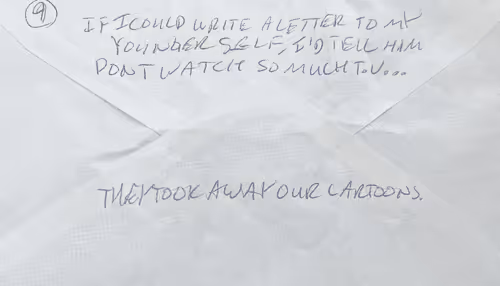 9
IF I COULD WRITE A LETTER TO MY
YOUNGER SELF, I'D TELL HIM
DONT WATCH SO MUCH T.V...
THEY TOOK AWAY OUR CARTOONS.